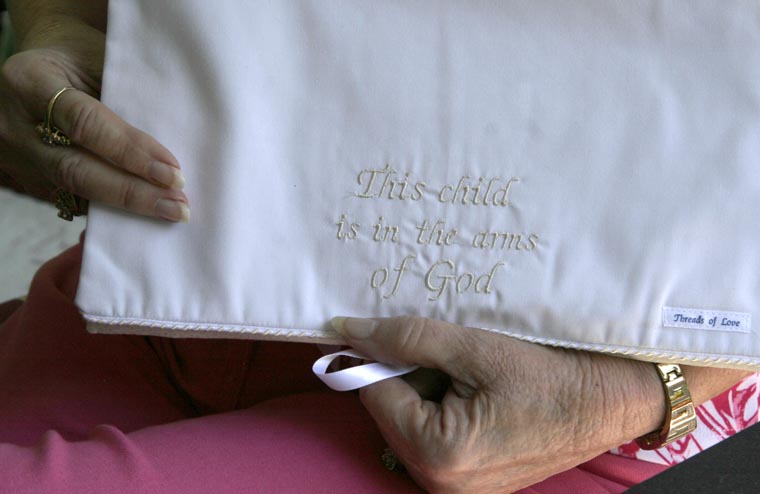 This child
is in the arms
of God
Threads of Love